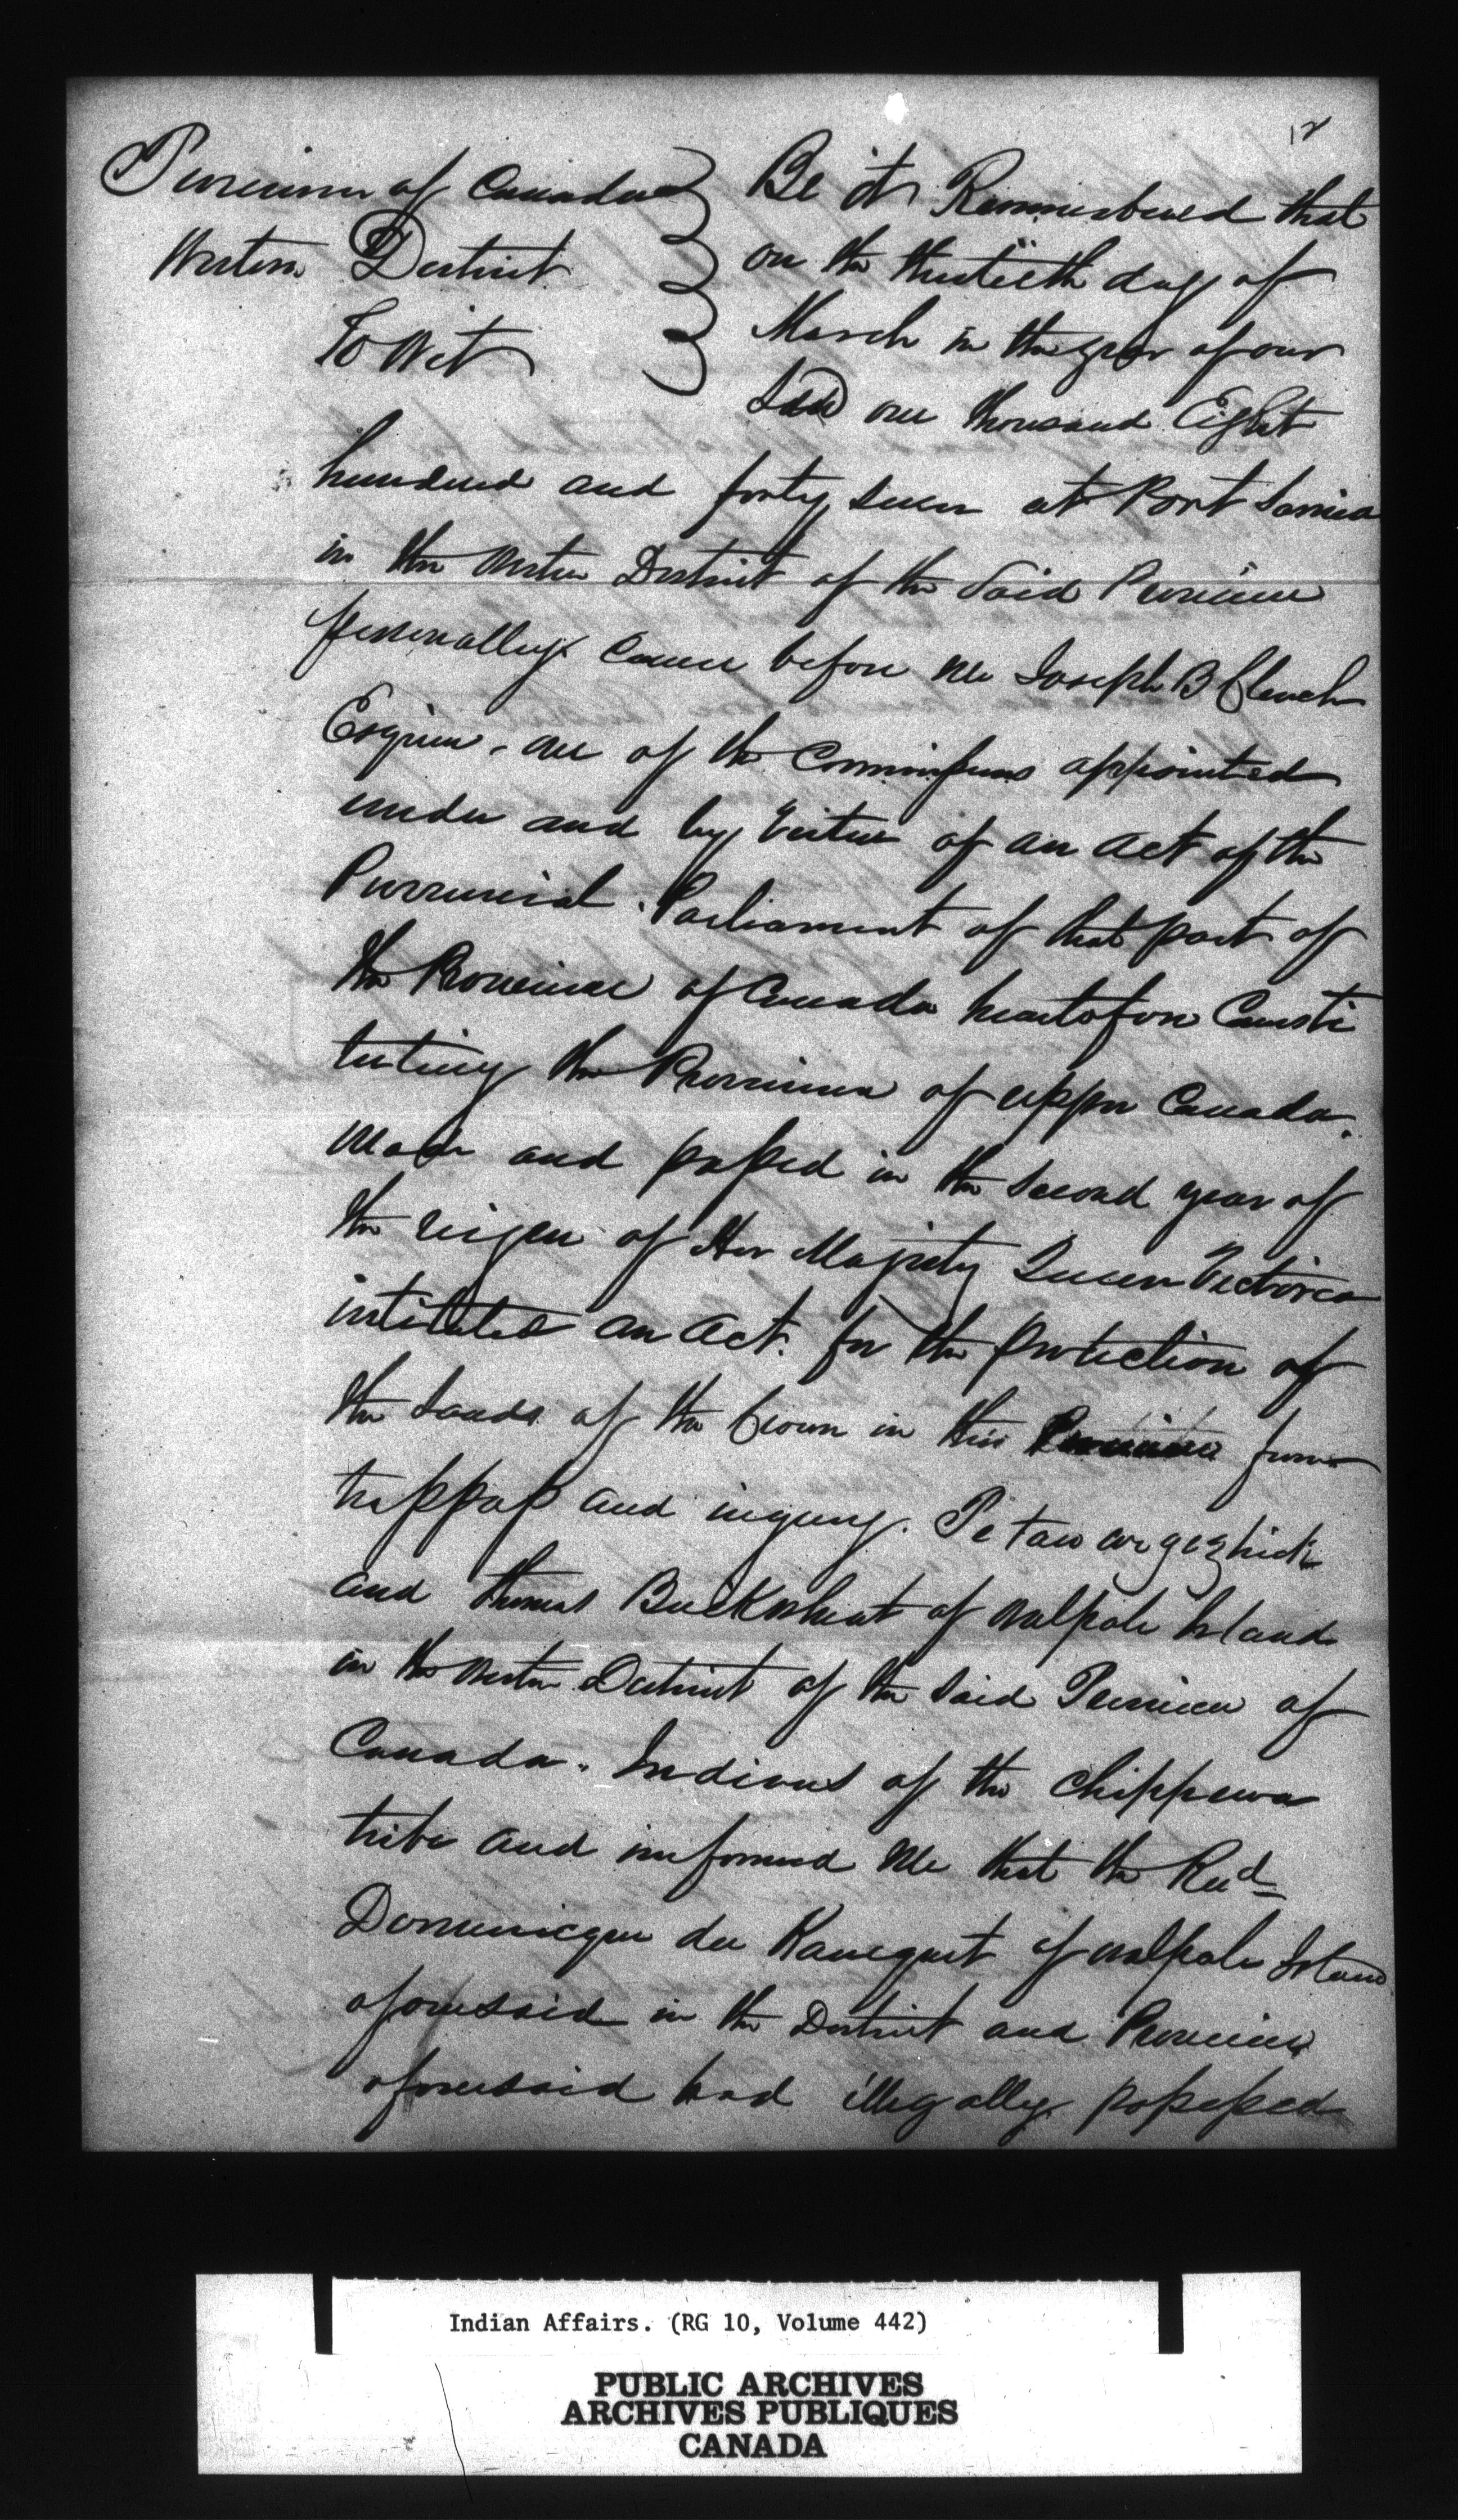 12
Province of Canada
Western District
To Wit
Be it Remembered that
on the thirtieth day of
March in the year of our
Lord one thousand Eight
hundred and forty seven at Port Sarnia
in the Western District of the Said Province
personally came before me Joseph B Clench
Esquire. one of the Commissioners appointed
under and by Virtue of an act of the
Provincial Parliament of that part of
the Province of Canada heretofore Consti
tuting the Province of upper Canada.
made and passed in the second year of
the reign of Her Majesty Queen Victoria
intituled an act. for the protection of
the Lands of the Crown in this Province from
trespass and injury. Petawargezhick
and Thomas Buckwheat of Walpole Island
in the Western District of the said Province of
Canada. Indians of the Chippewa
tribe and informed me that the Revd
Dominicque du Ranequet of Walpole Island
aforesaid in the District and Province
aforesaid had illegally possessed
Indian Affairs. (RG 10, Volume 442)
PUBLIC ARCHIVES
ARCHIVES PUBLIQUES
CANADA